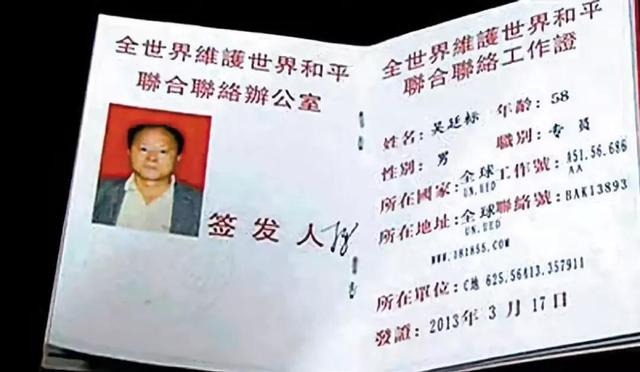 全世界維護世界和平
聯合聯絡辦公室
签发人
全世界維護世界和平
聯合聯絡工作證
姓名: 吴廷标 年齡: 58
性別: 男 職別: 专員
所在國家: 全球 工作號: A51.56.686
UN.UED AA
所在地址: 全球 聯絡號: BAK13893
UN.UED
WWW.181855.COM
所在單位: C地 625.56413.357911
發證: 2013年 3 月 17日